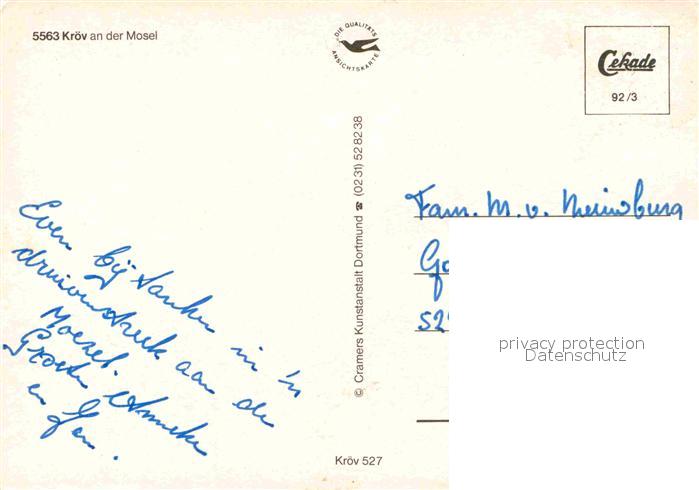 5563 Kröv an der Mosel
DIE QUALITÄTS
ANSICHTSKARTE
Cekade
92/3
© Cramers Kunstanstalt Dortmund ☎ (02 31) 52 82 38
Even bij tanken in 'n
druivenstreek aan de
Moezel.
Groeten Anneke
en Jan.
Fam. M. v.
52
privacy protection
Datenschutz
Kröv 527